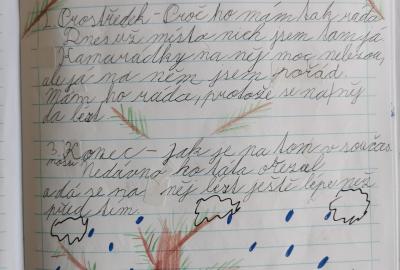 2. Prostředek - Proč ho mám tak ráda
Dnes už místa nich jsem tam já
Kamarádky na něj moc nelezou,
ale já na něm jsem pořád.
Mám ho ráda, protože se na něj
dá lézt
3. Konec - Jak je na tom v součas
nedávno ho táta ořezal
a dá se na něj lézt ještě lépe než
před tím.